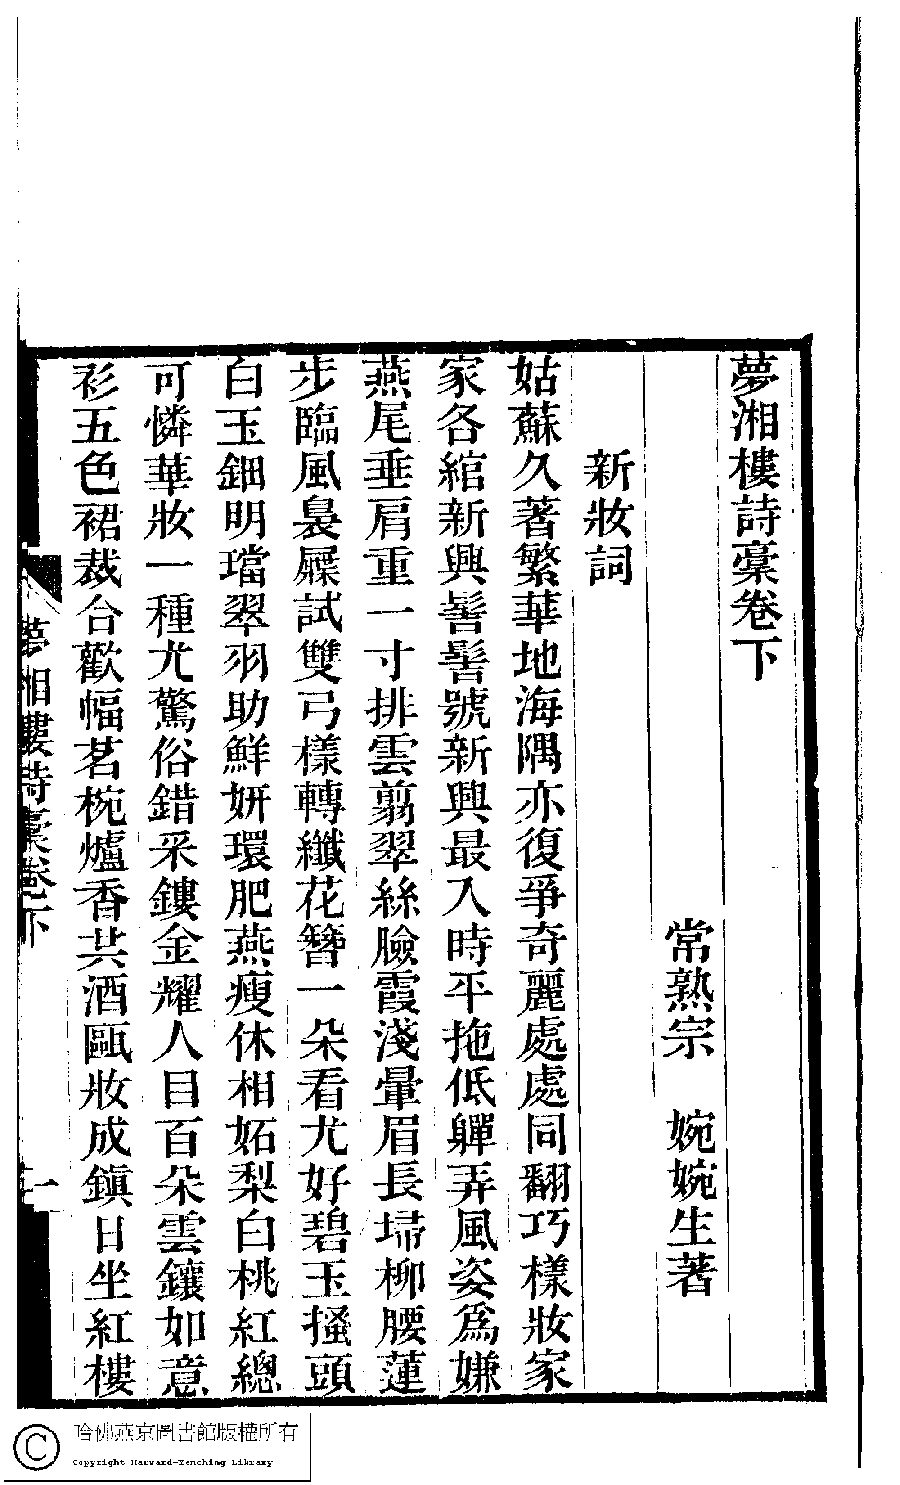 夢湘樓詩稾卷下
常熟宗 婉婉生著
新妝詞
姑蘇久著繁華地海隅亦復爭奇麗處處同翻巧樣妝家
家各綰新興髻髻號新興最入時平拖低軃弄風姿爲嫌
燕尾垂肩重一寸排雲翦翠絲臉霞淺暈眉長埽柳腰蓮
步臨風裊屧試雙弓樣轉纖花簪一朵看尤好碧玉搔頭
白玉鈿明璫翠羽助鮮妍環肥燕瘦休相妬梨白桃紅總
可憐華妝一種尤驚俗錯采鏤金耀人目百朵雲鑲如意
衫五色裙裁合歡幅茗椀爐香共酒甌妝成鎮日坐紅樓
夢湘樓詩稾卷下
一
哈佛燕京圖書館版權所有
Copyright Harvard-Yenching Library